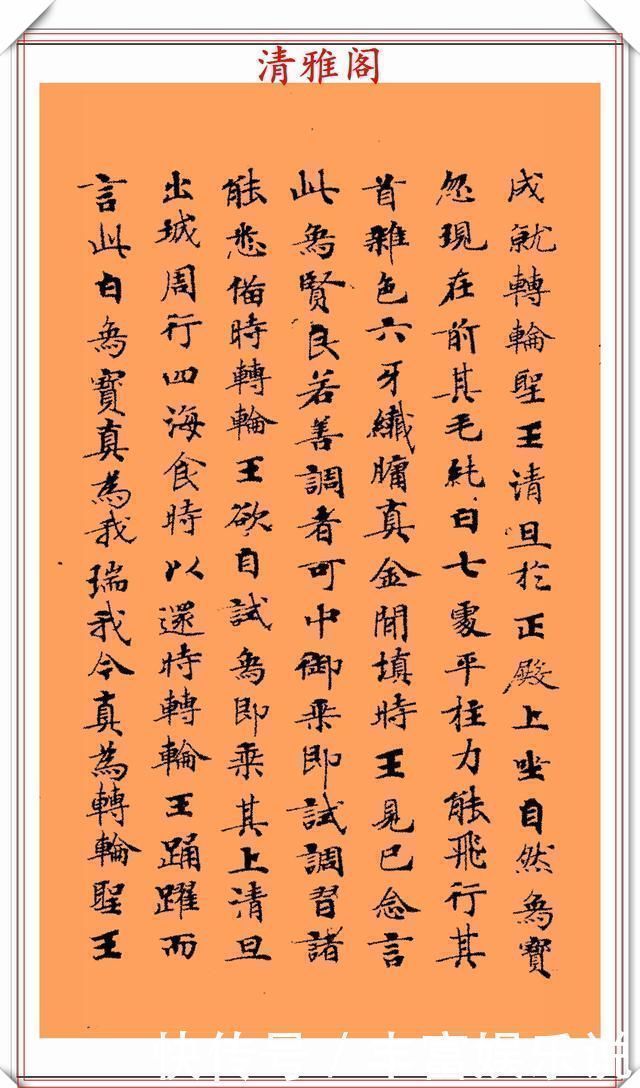 清雅阁
成就轉輪聖王清旦於正殿上坐自然象寶
忽現在前其毛純白七處平住力能飛行其
首雜色六牙纖𦟛真金間填時王見已念言
此象賢良若善調者可中御乘即試調習諸
能悉備時轉輪王欲自試象即乘其上清旦
出城周行四海食時以還時轉輪王踊躍而
言此白象寶真為我瑞我今真為轉輪聖王
快传号/